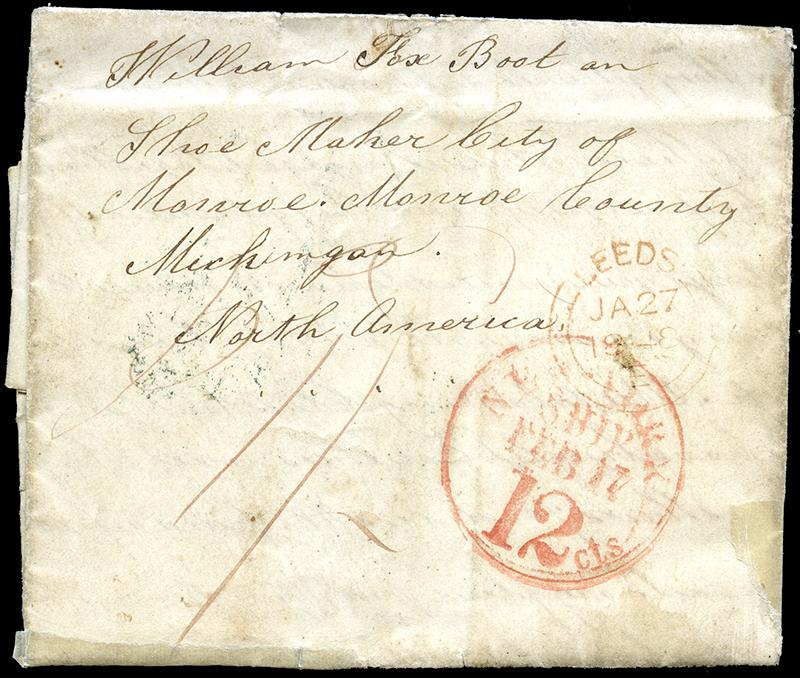 William Fox Boot an
Shoe Maker City of
Monroe. Monroe County
Michingan.
North America.
LEEDS
JA 27
1848
NEW YORK
SHIP
FEB 17
12 cts